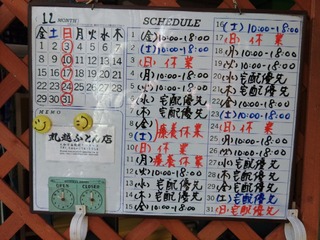 12 MONTH
金 土 日 月 火 水 木
1 2 3 4 5 6 7
8 9 10 11 12 13 14
15 16 17 18 19 20 21
22 23 24 25 26 27 28
29 30 31
MEMO
丸越ふとん店
OPEN CLOSED
SCHEDULE
1 (金) 10:00-18:00
2 (土) 10:00-18:00
3 (日) 休業
4 (月) 10:00-18:00
5 (火) 10:00-18:00
6 (水) 宅配優先
7 (木) 宅配優先
8 (金) 10:00-18:00
9 (土) 休業
10 (日) 休業
11 (月) 休業
12 (火) 10:00-18:00
13 (水) 宅配優先
14 (木) 宅配優先
15 (金) 10:00-18:00
16 (土) 10:00-18:00
17 (日) 休業
18 (月) 10:00-18:00
19 (火) 10:00-18:00
20 (水) 宅配優先
21 (木) 宅配優先
22 (金) 10:00-18:00
23 (土) 10:00-18:00
24 (日) 休業
25 (月) 10:00-18:00
26 (火) 10:00-18:00
27 (水) 宅配優先
28 (木) 宅配優先
29 (金) 宅配優先
30 (土) 宅配優先
31 (日) 宅配優先